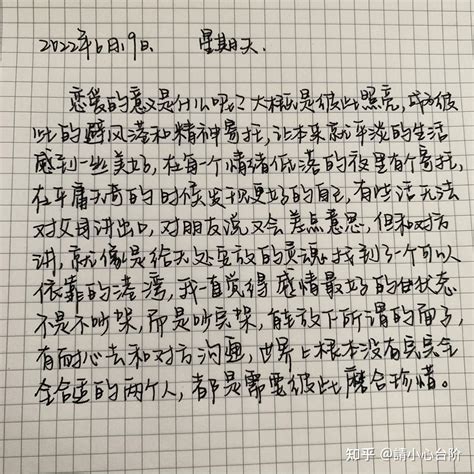 2022年6月19日. 星期天.
恋爱的意义是什么呢? 大概是彼此照亮, 成为彼
此的避风港和精神寄托, 让本来就平淡的生活
感到一丝美好, 在每一个情绪低落的夜里有个寄托,
在平庸无奇的时候发现更好的自己, 有些话无法
对父母讲出口, 对朋友说又会差点意思, 但和对方
讲, 就像是给无处安放的灵魂找到了一个可以
依靠的港湾, 我一直觉得感情最好的状态
不是不吵架, 而是吵完架, 能放下所谓的面子,
有耐心去和对方沟通, 世界上根本没有完完全
全合适的两个人, 都是需要彼此磨合珍惜。
知乎 @請小心台阶